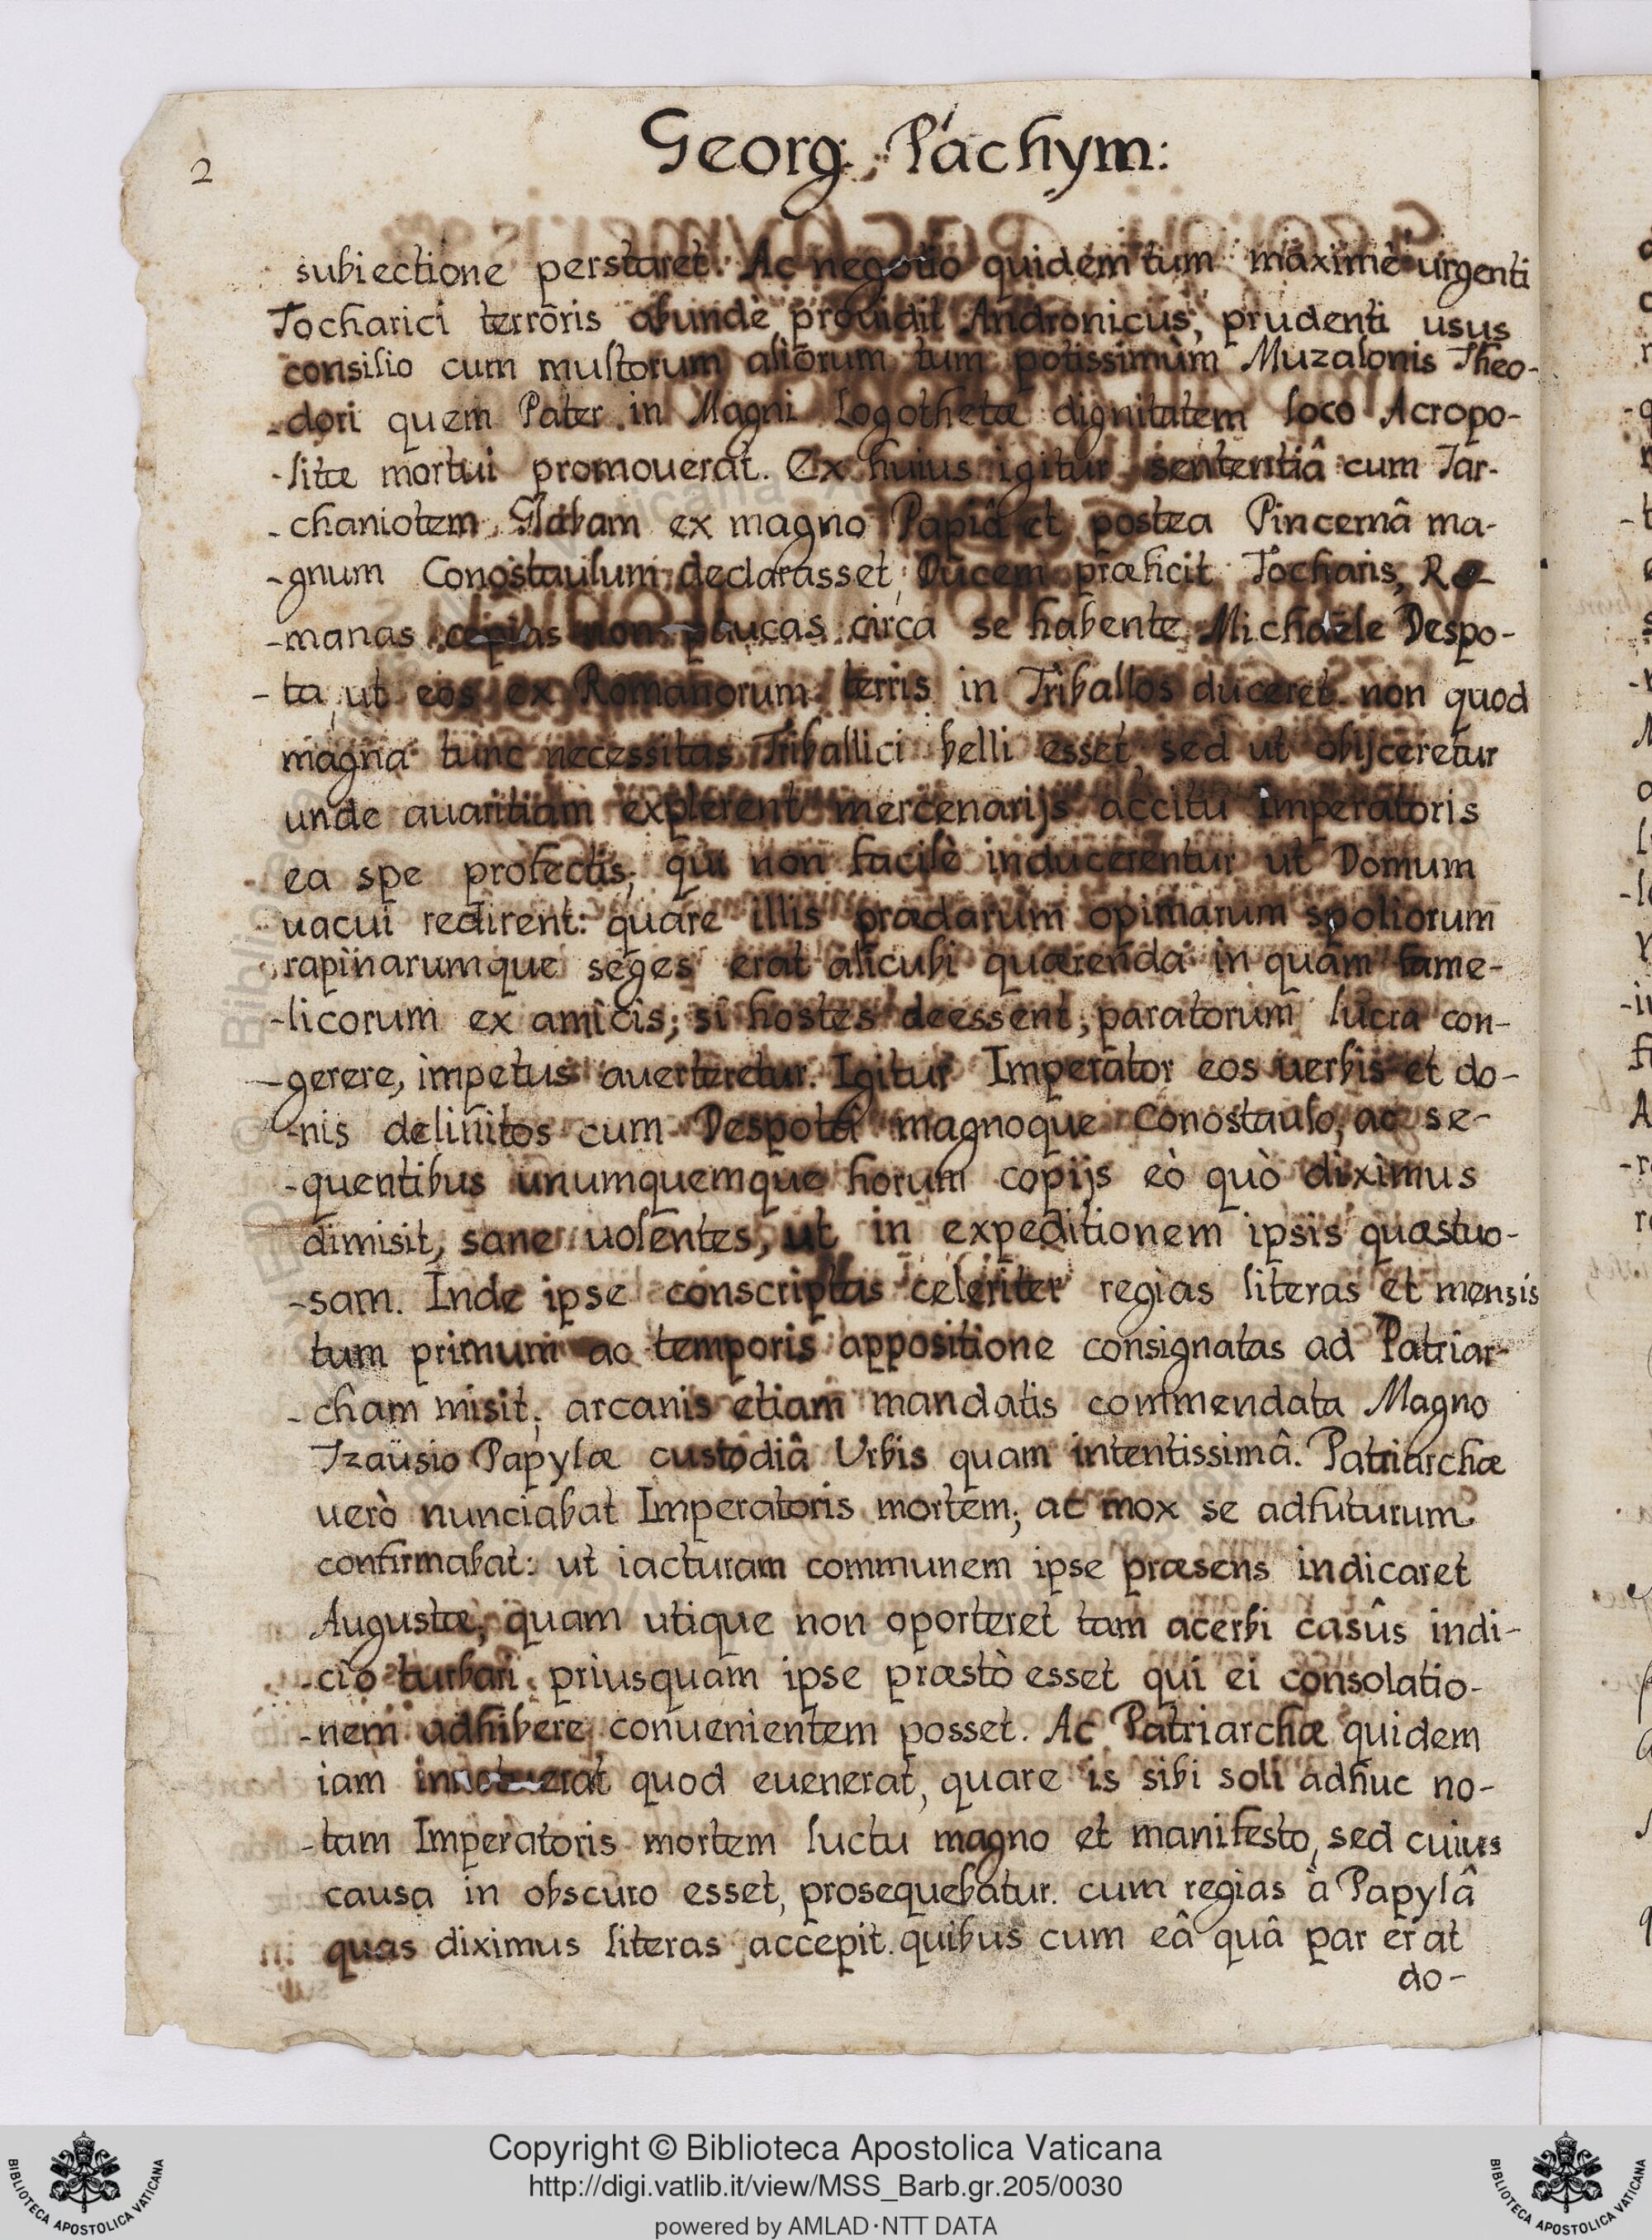 2
Georg: Pachym:
subiectione perstaret. Ac negotio quidem tum maximè urgenti
Tocharici terroris abundè prouidit Andronicus, prudenti usus
consilio cum multorum aliorum tum potissimùm Muzalonis Theo-
-dori quem Pater in Magni Logothetæ dignitatem loco Acropo-
-litæ mortui promouerat. Ex huius igitur sententiâ cum Tar-
-chaniotem Glabam ex magno Papiâ et postea Pincernâ ma-
-gnum Conostaulum declarasset, Ducem præficit Tocharis, Ro-
-manas copias non paucas circa se habente Michaële Despo-
-ta, ut eos ex Romanorum terris in Triballos duceret. non quod
magna tunc necessitas Triballici belli esset, sed ut obijceretur
unde auaritiam explerent mercenarijs accitu Imperatoris
ea spe profectis, qui non facilè inducerentur ut Domum
uacui redirent: quare illis prædarum opimarum spoliorum
rapinarumque seges erat alicubi quærenda in quam fame-
-licorum ex amicis, si hostes deessent, paratorum lucra con-
-gerere, impetus auerteretur. Igitur Imperator eos uerbis et do-
-nis delinitos cum Despotâ magnoque Conostaulo, ac se-
-quentibus unumquemque horum copijs eò quò diximus
dimisit, sane uolentes, ut in expeditionem ipsis quæstuo-
-sam. Inde ipse conscriptas celeriter regias literas et mensis
tum primum ac temporis appositione consignatas ad Patriar-
-cham misit; arcanis etiam mandatis commendata Magno
Tzaüsio Papylæ custodiâ Urbis quam intentissimâ. Patriarchæ
uerò nunciabat Imperatoris mortem; ac mox se adfuturum
confirmabat: ut iacturam communem ipse præsens indicaret
Augustæ, quam utique non oporteret tam acerbi casûs indi-
-cio turbari priusquam ipse præstò esset qui ei consolatio-
-nem adhibere conuenientem posset. Ac Patriarchæ quidem
iam innotuerat quod euenerat, quare is sibi soli adhuc no-
-tam Imperatoris mortem luctu magno et manifesto, sed cuius
causa in obscuro esset, prosequebatur. cum regias à Papylâ
quas diximus literas accepit. quibus cum eâ quâ par erat
do-
Copyright © Biblioteca Apostolica Vaticana
http://digi.vatlib.it/view/MSS_Barb.gr.205/0030
powered by AMLAD·NTT DATA
BIBLIOTECA APOSTOLICA VATICANA
BIBLIOTECA APOSTOLICA VATICANA